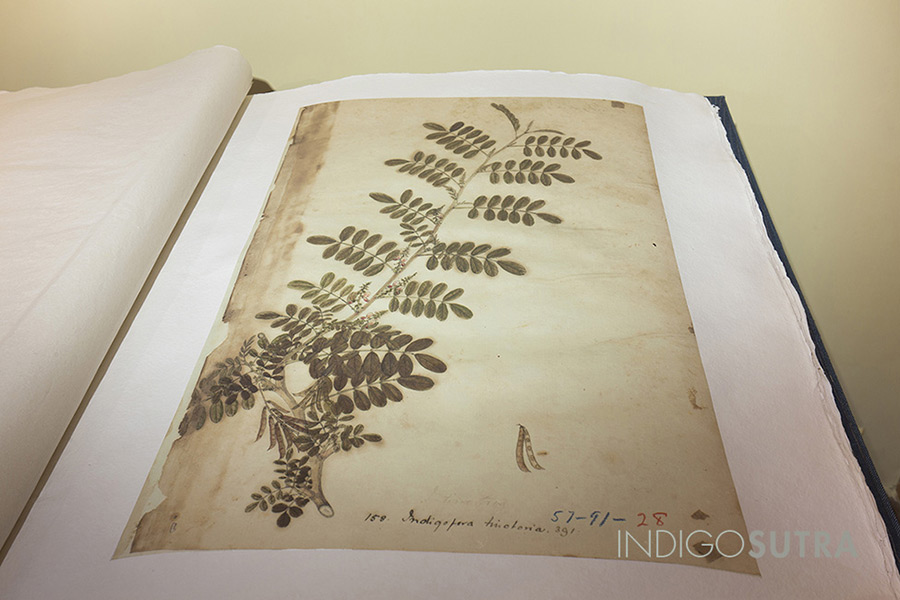 158. Indigofera tinctoria. 391 57-91-28
INDIGOSUTRA